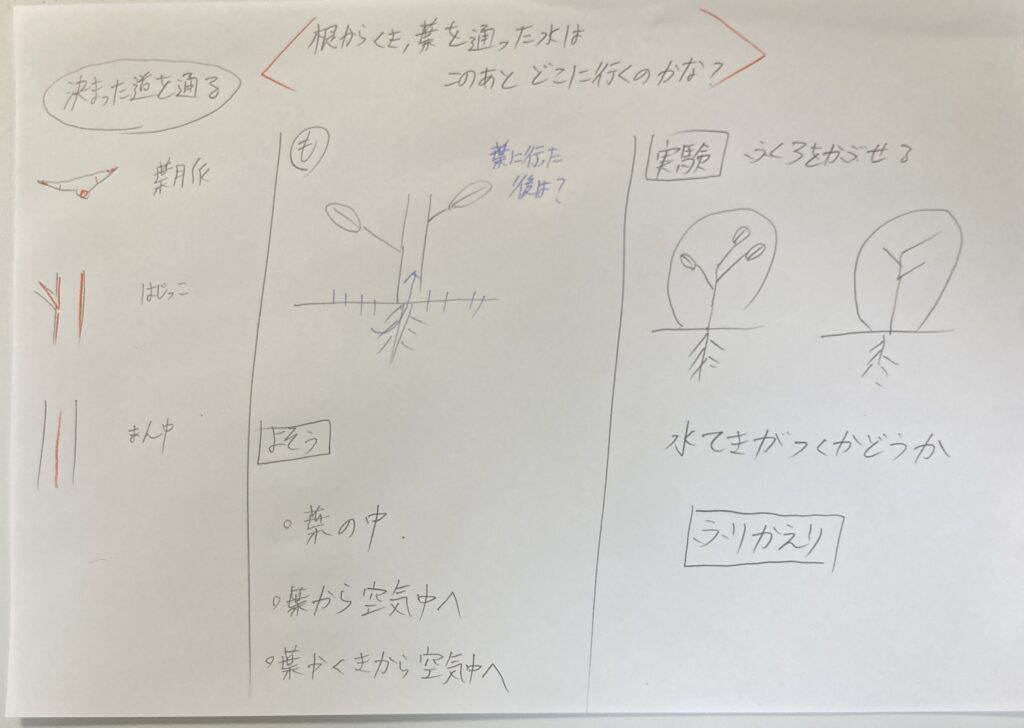 根からくき,葉を通った水は
このあと どこに行くのかな?
決まった道を通る
葉脈
はじっこ
まん中
も
葉に行った
後は?
よそう
。葉の中.
。葉から空気中へ
。葉やくきから空気中へ
実験 ふくろをかぶせる
水てきがつくかどうか
ふりかえり